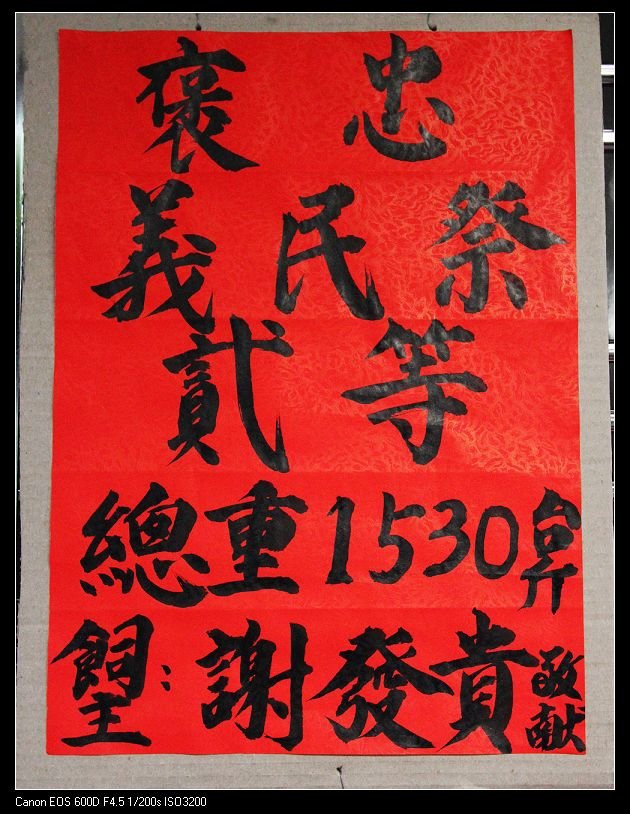 褒忠
義民祭
貳等
總重1530台斤
飼主:謝發貴敬献
Canon EOS 600D F4.5 1/200s ISO3200